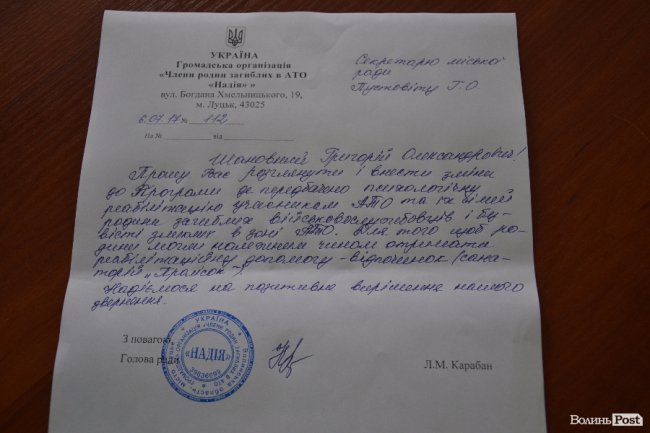 УКРАЇНА
Громадська організація
«Члени родин загиблих в АТО
«Надія» »
вул. Богдана Хмельницького, 19,
м. Луцьк, 43025
Секретарю міської
ради
Пустовіту Г.О.
6.07.17 № 112
На № від
Шановний Григорій Олександрович!
Прошу Вас розглянути і внести зміни
до Програми де передбачено психологічну
реабілітацію учасникам АТО та їх сімей
родини загиблих військовослужбовців і бу-
зниклих в зоні АТО. Для того щоб ро-
дини могли належним чином отримати
реабілітаційну допомогу - відпочинок (сана-
торій
Надіємося на позитивне вирішення нашого
звернення.
З повагою,
Голова ради
Л.М. Карабан
УКРАЇНА
«НАДІЯ»
ВолиньPost